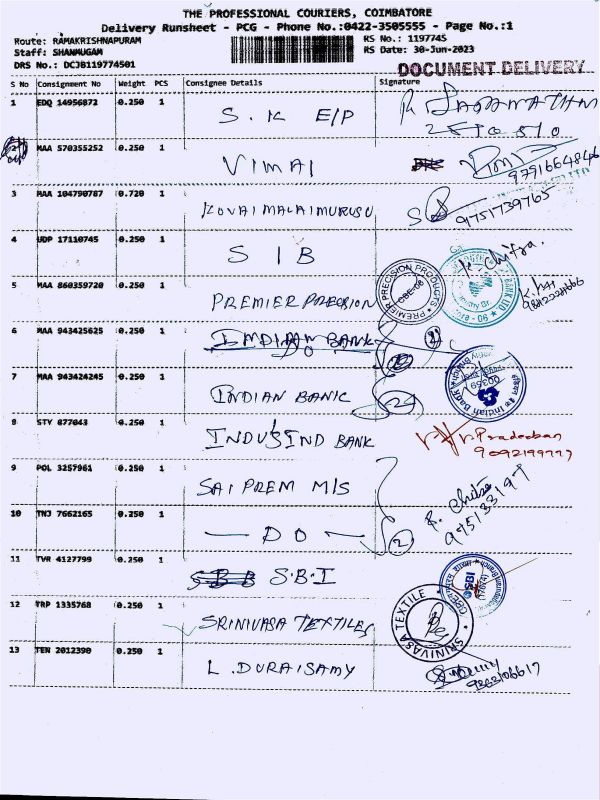 THE PROFESSIONAL COURIERS, COIMBATORE
Delivery Runsheet - PCG - Phone No.:0422-3505555 - Page No.:1
Route: RAMAKRISHNAPURAM RS No.: 1197745
Staff: SHANMUGAM RS Date: 30-Jun-2023
DRS No.: DCJB119774501
DOCUMENT DELIVERY
S No Consignment No Weight PCS Consignee Details Signature
1 EDQ 14956872 0.250 1 S.K E/P
MAA 570355252 0.250 1 VIMAI
9791664846
3 MAA 104790787 0.720 1 KOVAIMALAIMURUSU 9751739765
4 UDP 17110745 0.250 1 S I B K. Chitra.
5 MAA 860359720 0.250 1 PREMIER PRECISION
PREMIER PRECISION PRODUCTS CBE-06
6 MAA 943425625 0.250 1 INDIAN BANK
7 MAA 943424245 0.250 1 INDIAN BANK 2
Indian Bank
8 STY 877043 0.250 1 INDUSIND BANK
Pradeeban
9092199777
9 POL 3257961 0.250 1 SAI PREM M/S
975133197
10 TNJ 7662165 0.250 1 — DO — 2
11 TVR 4127799 0.250 1 S.B.I
SBI
12 TRP 1335768 0.250 1 SRINIVASA TEXTILES
SRINIVASA TEXTILE
13 TEN 2012390 0.250 1 L.DURAISAMY
9863106617